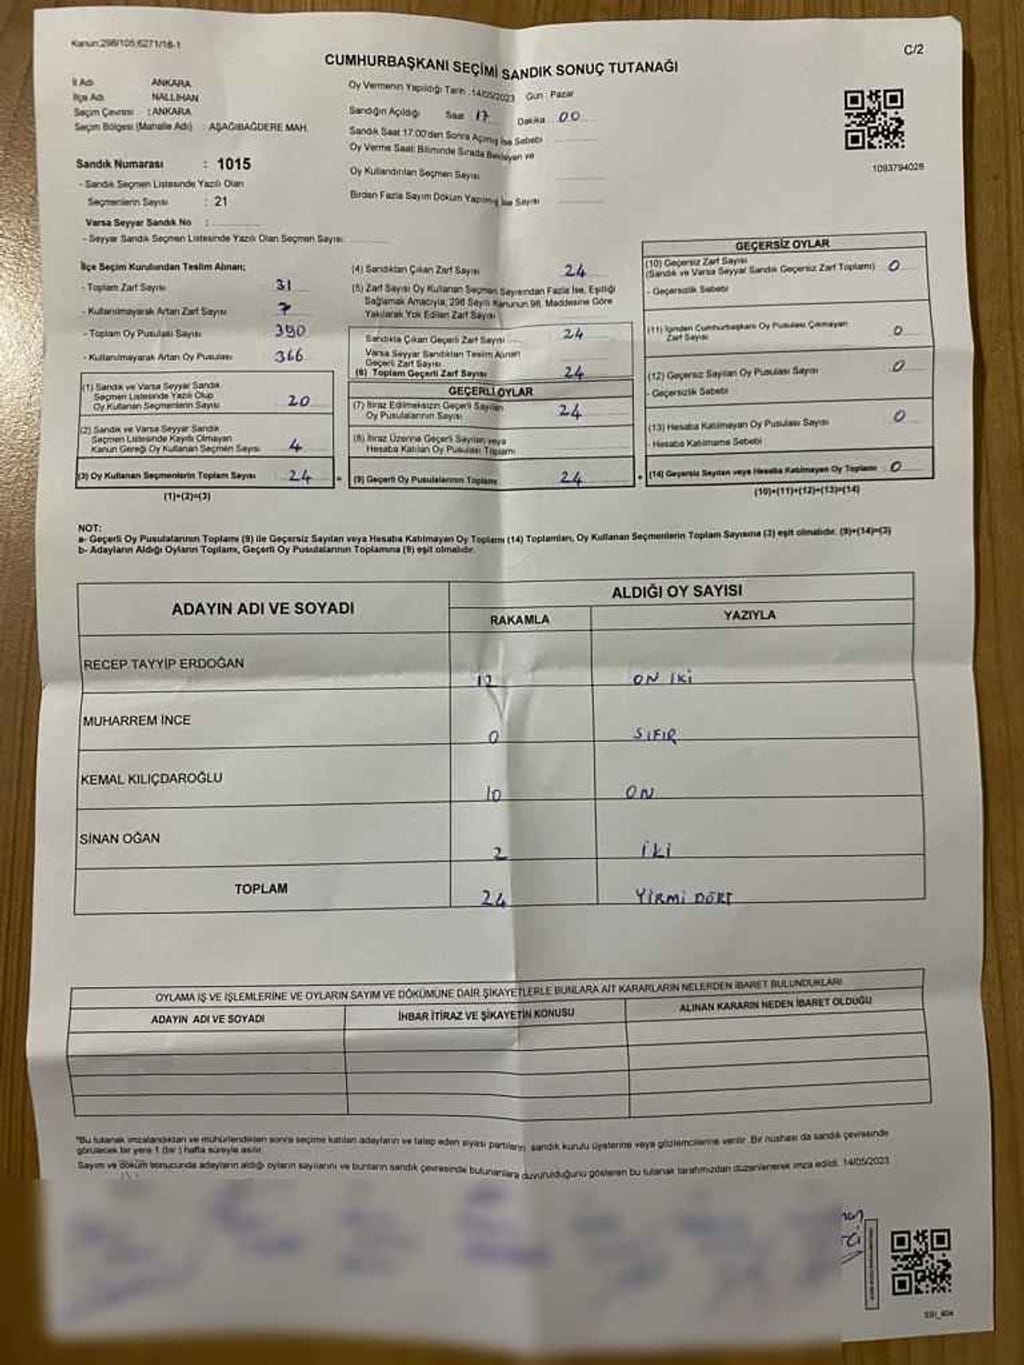 Kanun:298/105;6271/18-1
C/2
CUMHURBAŞKANI SEÇİMİ SANDIK SONUÇ TUTANAĞI
İl Adı ANKARA
İlçe Adı NALLIHAN
Seçim Çevresi : ANKARA
Seçim Bölgesi (Mahalle Adı) : AŞAĞIBAĞDERE MAH.
Sandık Numarası : 1015
- Sandık Seçmen Listesinde Yazılı Olan
Seçmenlerin Sayısı : 21
Varsa Seyyar Sandık No :
- Seyyar Sandık Seçmen Listesinde Yazılı Olan Seçmen Sayısı:
Oy Vermenin Yapıldığı Tarih :14/05/2023 Gün : Pazar
Sandığın Açıldığı Saat 17 Dakika 00
Sandık Saat 17:00'den Sonra Açılmış İse Sebebi
Oy Verme Saati Bitiminde Sırada Bekleyen ve
Oy Kullandırılan Seçmen Sayısı
Birden Fazla Sayım Döküm Yapılmış İse Sayısı
1093794028
İlçe Seçim Kurulundan Teslim Alınan;
- Toplam Zarf Sayısı 31
- Kullanılmayarak Artan Zarf Sayısı 7
- Toplam Oy Pusulası Sayısı 390
- Kullanılmayarak Artan Oy Pusulası 366
(1) Sandık ve Varsa Seyyar Sandık
Seçmen Listesinde Yazılı Olup
Oy Kullanan Seçmenlerin Sayısı 20
(2) Sandık ve Varsa Seyyar Sandık
Seçmen Listesinde Kayıtlı Olmayan
Kanun Gereği Oy Kullanan Seçmen Sayısı 4
(3) Oy Kullanan Seçmenlerin Toplam Sayısı 24
(1)+(2)=(3)
(4) Sandıktan Çıkan Zarf Sayısı 24
(5) Zarf Sayısı Oy Kullanan Seçmen Sayısından Fazla İse, Eşitliği
Sağlamak Amacıyla, 298 Sayılı Kanunun 98. Maddesine Göre
Yakılarak Yok Edilen Zarf Sayısı
Sandıkta Çıkan Geçerli Zarf Sayısı 24
Varsa Seyyar Sandıktan Teslim Alınan
Geçerli Zarf Sayısı
(6) Toplam Geçerli Zarf Sayısı 24
GEÇERLİ OYLAR
(7) İtiraz Edilmeksizin Geçerli Sayılan
Oy Pusulalarının Sayısı 24
(8) İtiraz Üzerine Geçerli Sayılan veya
Hesaba Katılan Oy Pusulası Toplamı
(9) Geçerli Oy Pusulalarının Toplamı 24
GEÇERSİZ OYLAR
(10) Geçersiz Zarf Sayısı
(Sandık ve Varsa Seyyar Sandık Geçersiz Zarf Toplamı) 0
- Geçersizlik Sebebi
(11) İçinden Cumhurbaşkanı Oy Pusulası Çıkmayan
Zarf Sayısı 0
(12) Geçersiz Sayılan Oy Pusulası Sayısı 0
- Geçersizlik Sebebi
(13) Hesaba Katılmayan Oy Pusulası Sayısı 0
- Hesaba Katılmama Sebebi
(14) Geçersiz Sayılan veya Hesaba Katılmayan Oy Toplamı 0
(10)+(11)+(12)+(13)=(14)
NOT:
a- Geçerli Oy Pusulalarının Toplamı (9) ile Geçersiz Sayılan veya Hesaba Katılmayan Oy Toplamı (14) Toplamları, Oy Kullanan Seçmenlerin Toplam Sayısına (3) eşit olmalıdır. (9)+(14)=(3)
b- Adayların Aldığı Oyların Toplamı, Geçerli Oy Pusulalarının Toplamına (9) eşit olmalıdır.
ADAYIN ADI VE SOYADI
ALDIĞI OY SAYISI
RAKAMLA YAZIYLA
RECEP TAYYİP ERDOĞAN 12 ON İKİ
MUHARREM İNCE 0 SIFIR
KEMAL KILIÇDAROĞLU 10 ON
SİNAN OĞAN 2 İKİ
TOPLAM 24 YİRMİ DÖRT
OYLAMA İŞ VE İŞLEMLERİNE VE OYLARIN SAYIM VE DÖKÜMÜNE DAİR ŞİKAYETLERLE BUNLARA AİT KARARLARIN NELERDEN İBARET BULUNDUKLARI
ADAYIN ADI VE SOYADI İHBAR İTİRAZ VE ŞİKAYETİN KONUSU ALINAN KARARIN NEDEN İBARET OLDUĞU
*Bu tutanak imzalandıktan ve mühürlendikten sonra seçime katılan adayların ve talep eden siyasi partilerin, sandık kurulu üyelerine veya gözlemcilerine verilir. Bir nüshası da sandık çevresinde
görülecek bir yere 1 (bir) hafta süreyle asılır.
Sayım ve döküm sonucunda adayların aldığı oyların sayılarını ve bunların sandık çevresinde bulunanlara duyurulduğunu gösteren bu tutanak tarafımızdan düzenlenerek imza edildi. 14/05/2023